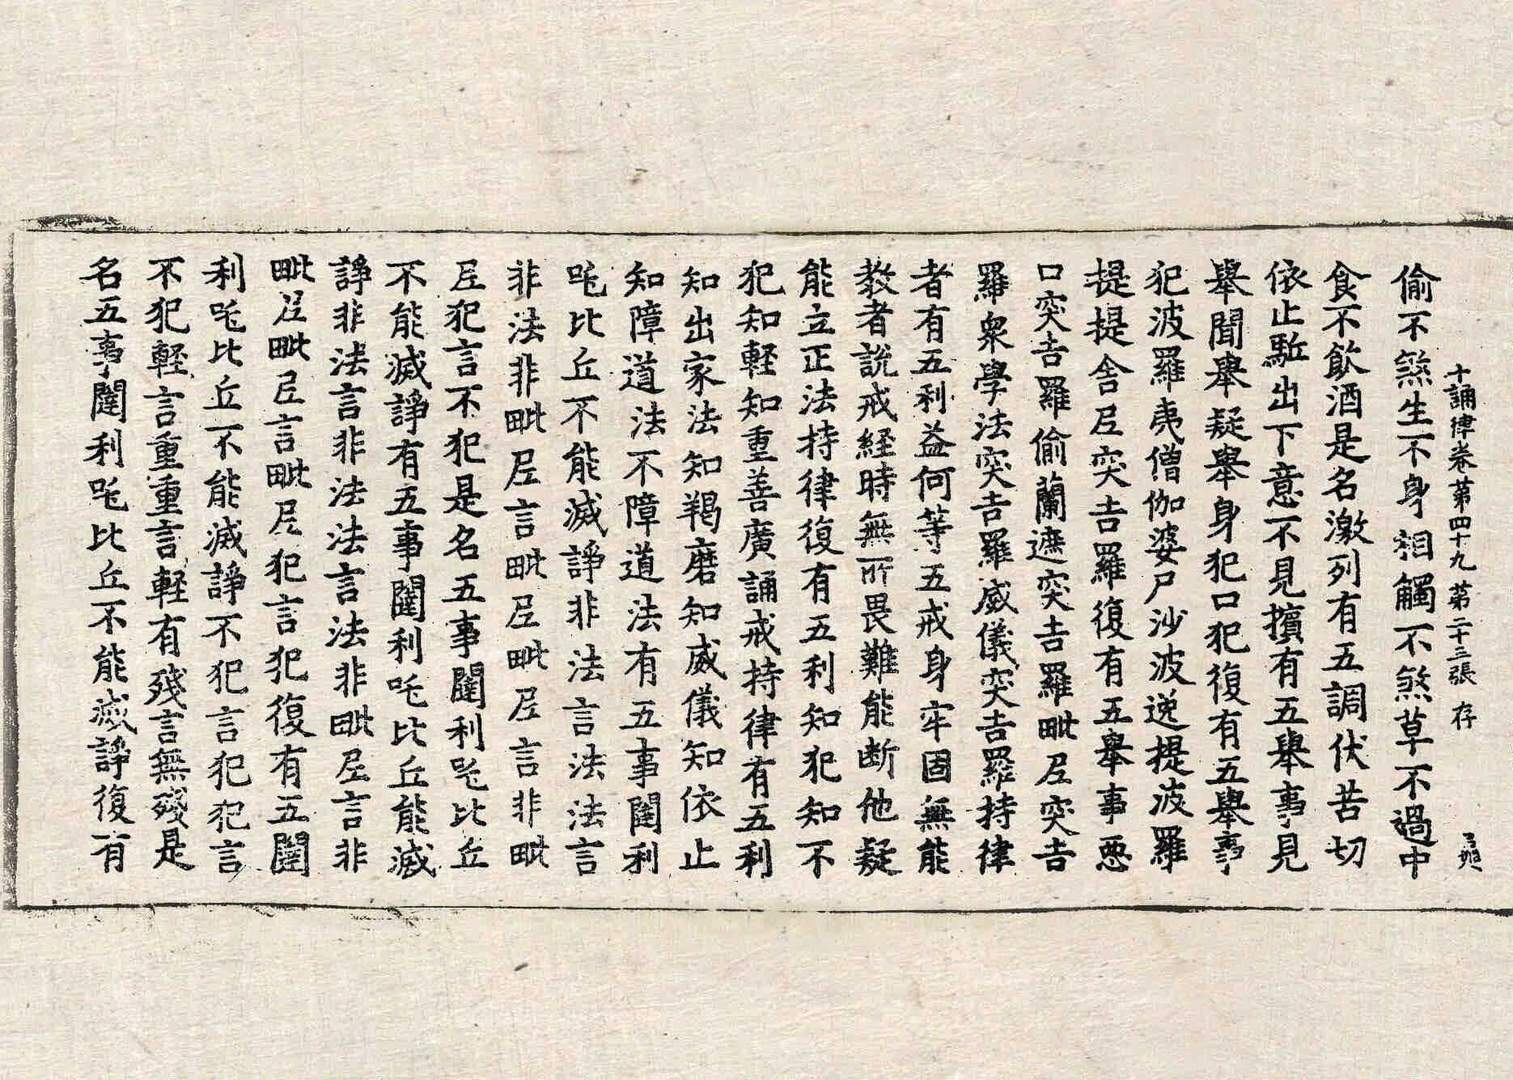 十誦律卷第四十九 第二十三張 存
偷不煞生不身相觸不煞草不過中
食不飲酒是名激列有五調伏苦切
依止駈出下意不見擯有五舉事見
舉聞舉疑舉身犯口犯復有五舉事
犯波羅夷僧伽婆尸沙波逸提波羅
提提舍尼突吉羅復有五舉事惡
口突吉羅偷蘭遮突吉羅毗尼突吉
羅衆學法突吉羅威儀突吉羅持律
者有五利益何等五戒身牢固無能
教者說戒經時無所畏難能断他疑
能立正法持律復有五利知犯知不
犯知輕知重善廣誦戒持律有五利
知出家法知羯磨知威儀知依止
知障道法不障道法有五事闥利
吒比丘不能滅諍非法言法法言
非法非毗尼言毗尼毗尼言非毗
尼犯言不犯是名五事闥利吒比丘
不能滅諍有五事闥利吒比丘能滅
諍非法言非法法言法非毗尼言非
毗尼毗尼言毗尼犯言犯復有五闥
利吒比丘不能滅諍不犯言犯犯言
不犯輕言重重言輕有殘言無殘是
名五事闥利吒比丘不能滅諍復有